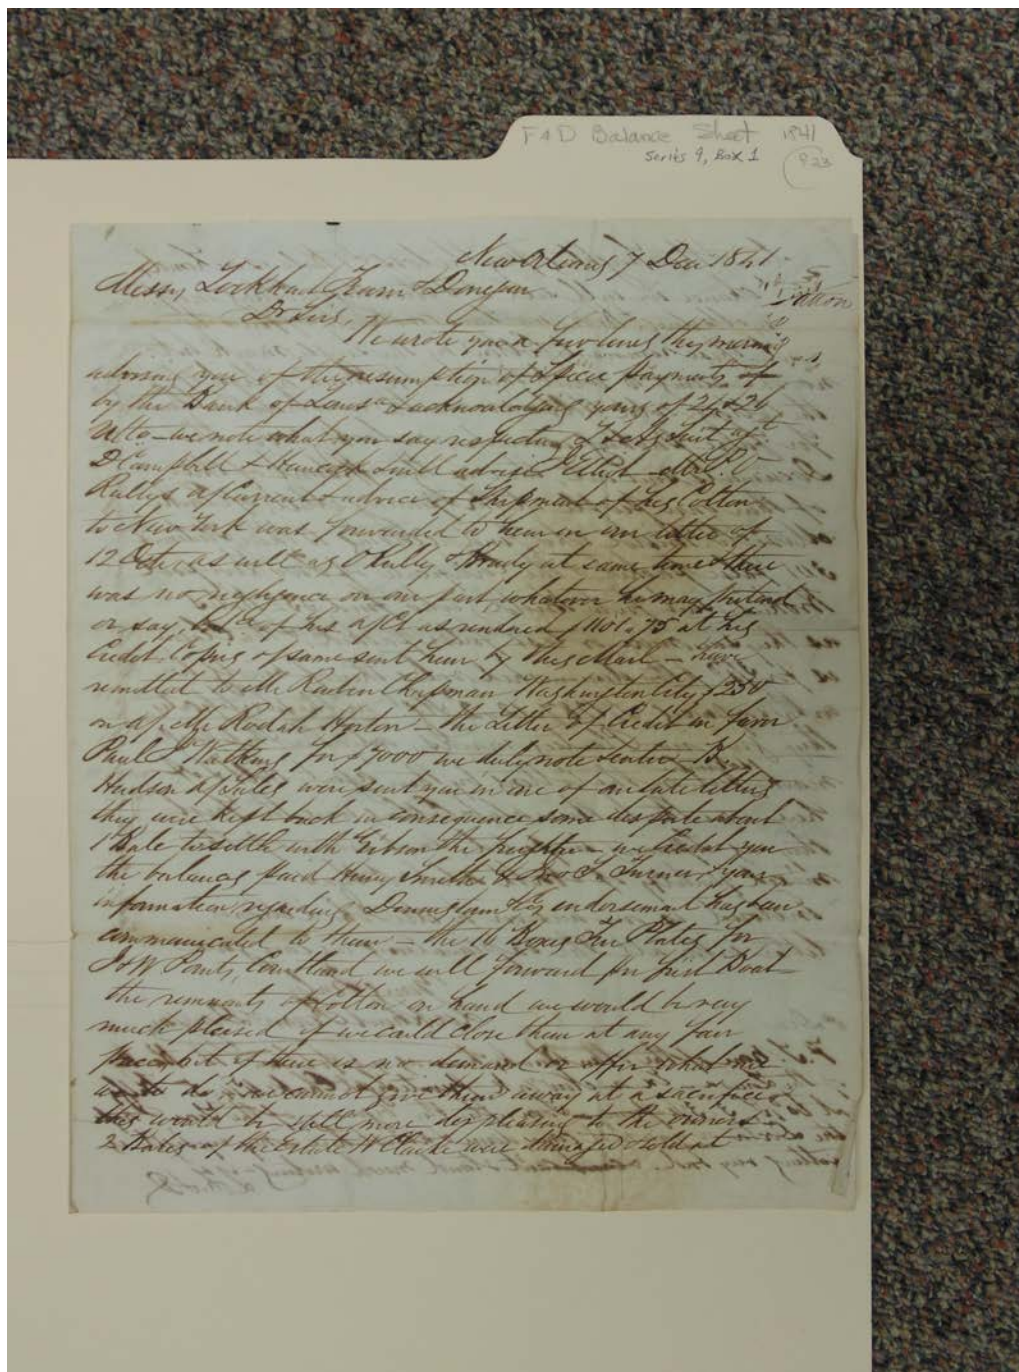 F & D Balance Sheet 1841
Series 9, Box 1
P 23
New Orleans 7 Dec 1841
Messrs Lockhart Fearn & Donegan
Dr Sirs,
We wrote you a few lines this morning
advising you of the resumption of Specie payments
by the Bank of & acknowledging yours of 24 & 26
Ulto - we note what you say respecting suit of
D Campbell & & will advise
a/Current & advice of Shipment of his Cotton
to New York was forwarded to them in our letter of
12 Octr, as well as at same time & there
was no negligence on our part, whatever he may pretend
or say, of his a/Ct as rendered $1101.75 at his
Credit. Copies of same sent him by this Mail - have
remitted to Mr Chapman Washington City $250
on a/c Mr Rodah Horton - the Letter of Credit in favor
Paul J Watkins for $7000 we duly note
Hudson a/Sales were sent you in one of our late letters
they were kept back in consequence some dispute about
1 Bale to settle with Gibson the - we Credit you
the balances paid Henry Smith & Turner, your
information regarding endorsement has been
communicated to them - the 16 Boxes Tin Plates for
J & W Courtland we will forward per first Boat
the remnants of Cotton on hand we would be very
much pleased if we could close them at any fair
price, but if there is no demand or offer what are
we to do, we cannot give them away at a sacrifice
this would be still more displeasing to the owners
2 Bales of the Estate W Clarke were damaged & sold at